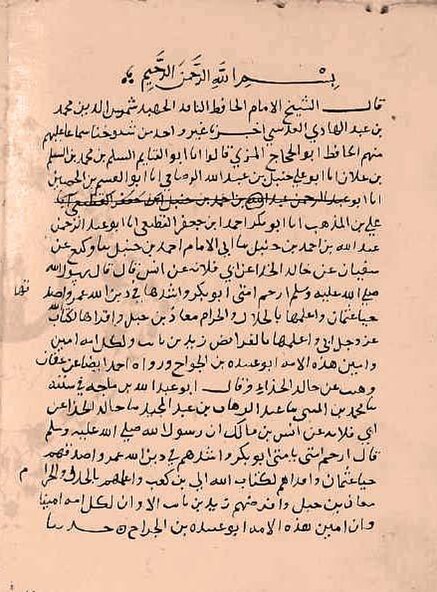 بسم الله الرحمن الرحيم
قال الشيخ الامام الحافظ الناقد الجهبذ شمس الدين محمد
بن عبد الهادي المقدسي اخبرنا غير واحد من شيوخنا سماعا عليهم
منهم الحافظ ابو الحجاج المزي قالوا انا ابو الغنايم المسلم بن محمد بن المسلم
بن علان انا ابو علي حنبل بن عبد الله الرصافي انا ابو القسم بن الحصين
انا ابو عبد الرحمن عبد الله بن احمد بن حنبل ابن جعفر القطيعي
علي بن المذهب انا ابو بكر احمد بن جعفر القطيعي انا ابو عبد الرحمن
عبد الله بن احمد بن حنبل نا ابي الامام احمد بن حنبل نا وكيع عن
سفيان عن خالد الحذا عن ابي قلابه عن انس قال قال رسول الله
صلى الله عليه وسلم ارحم امتي ابو بكر واشدها في دين الله عمر واصدقها
حيا عثمان واعلمها بالحلال والحرام معاذ بن جبل واقراها لكتاب الله
عز وجل ابي واعلمها بالفرايض زيد بن ثابت ولكل امه امين
وامين هذه الامه ابو عبيده بن الجراح ورواه احمد ايضا عن عفان
وهيب عن خالد الحذاء وقال ابو عبد الله بن ماجه في سننه
نا محمد بن المثنى نا عبد الوهاب بن عبد المجيد نا خالد الحذا عن
ابي قلابه عن انس بن مالك ان رسول الله صلى الله عليه وسلم
قال ارحم امتي بامتي ابو بكر واشدهم في دين الله عمر واصدقهم
حيا عثمان واقراهم لكتاب الله ابي بن كعب واعلمهم بالحلال والحرام
معاذ بن جبل وافرضهم زيد بن ثابت الا وان لكل امه امينا
وان امين هذه الامه ابو عبيده بن الجراح حدثنا